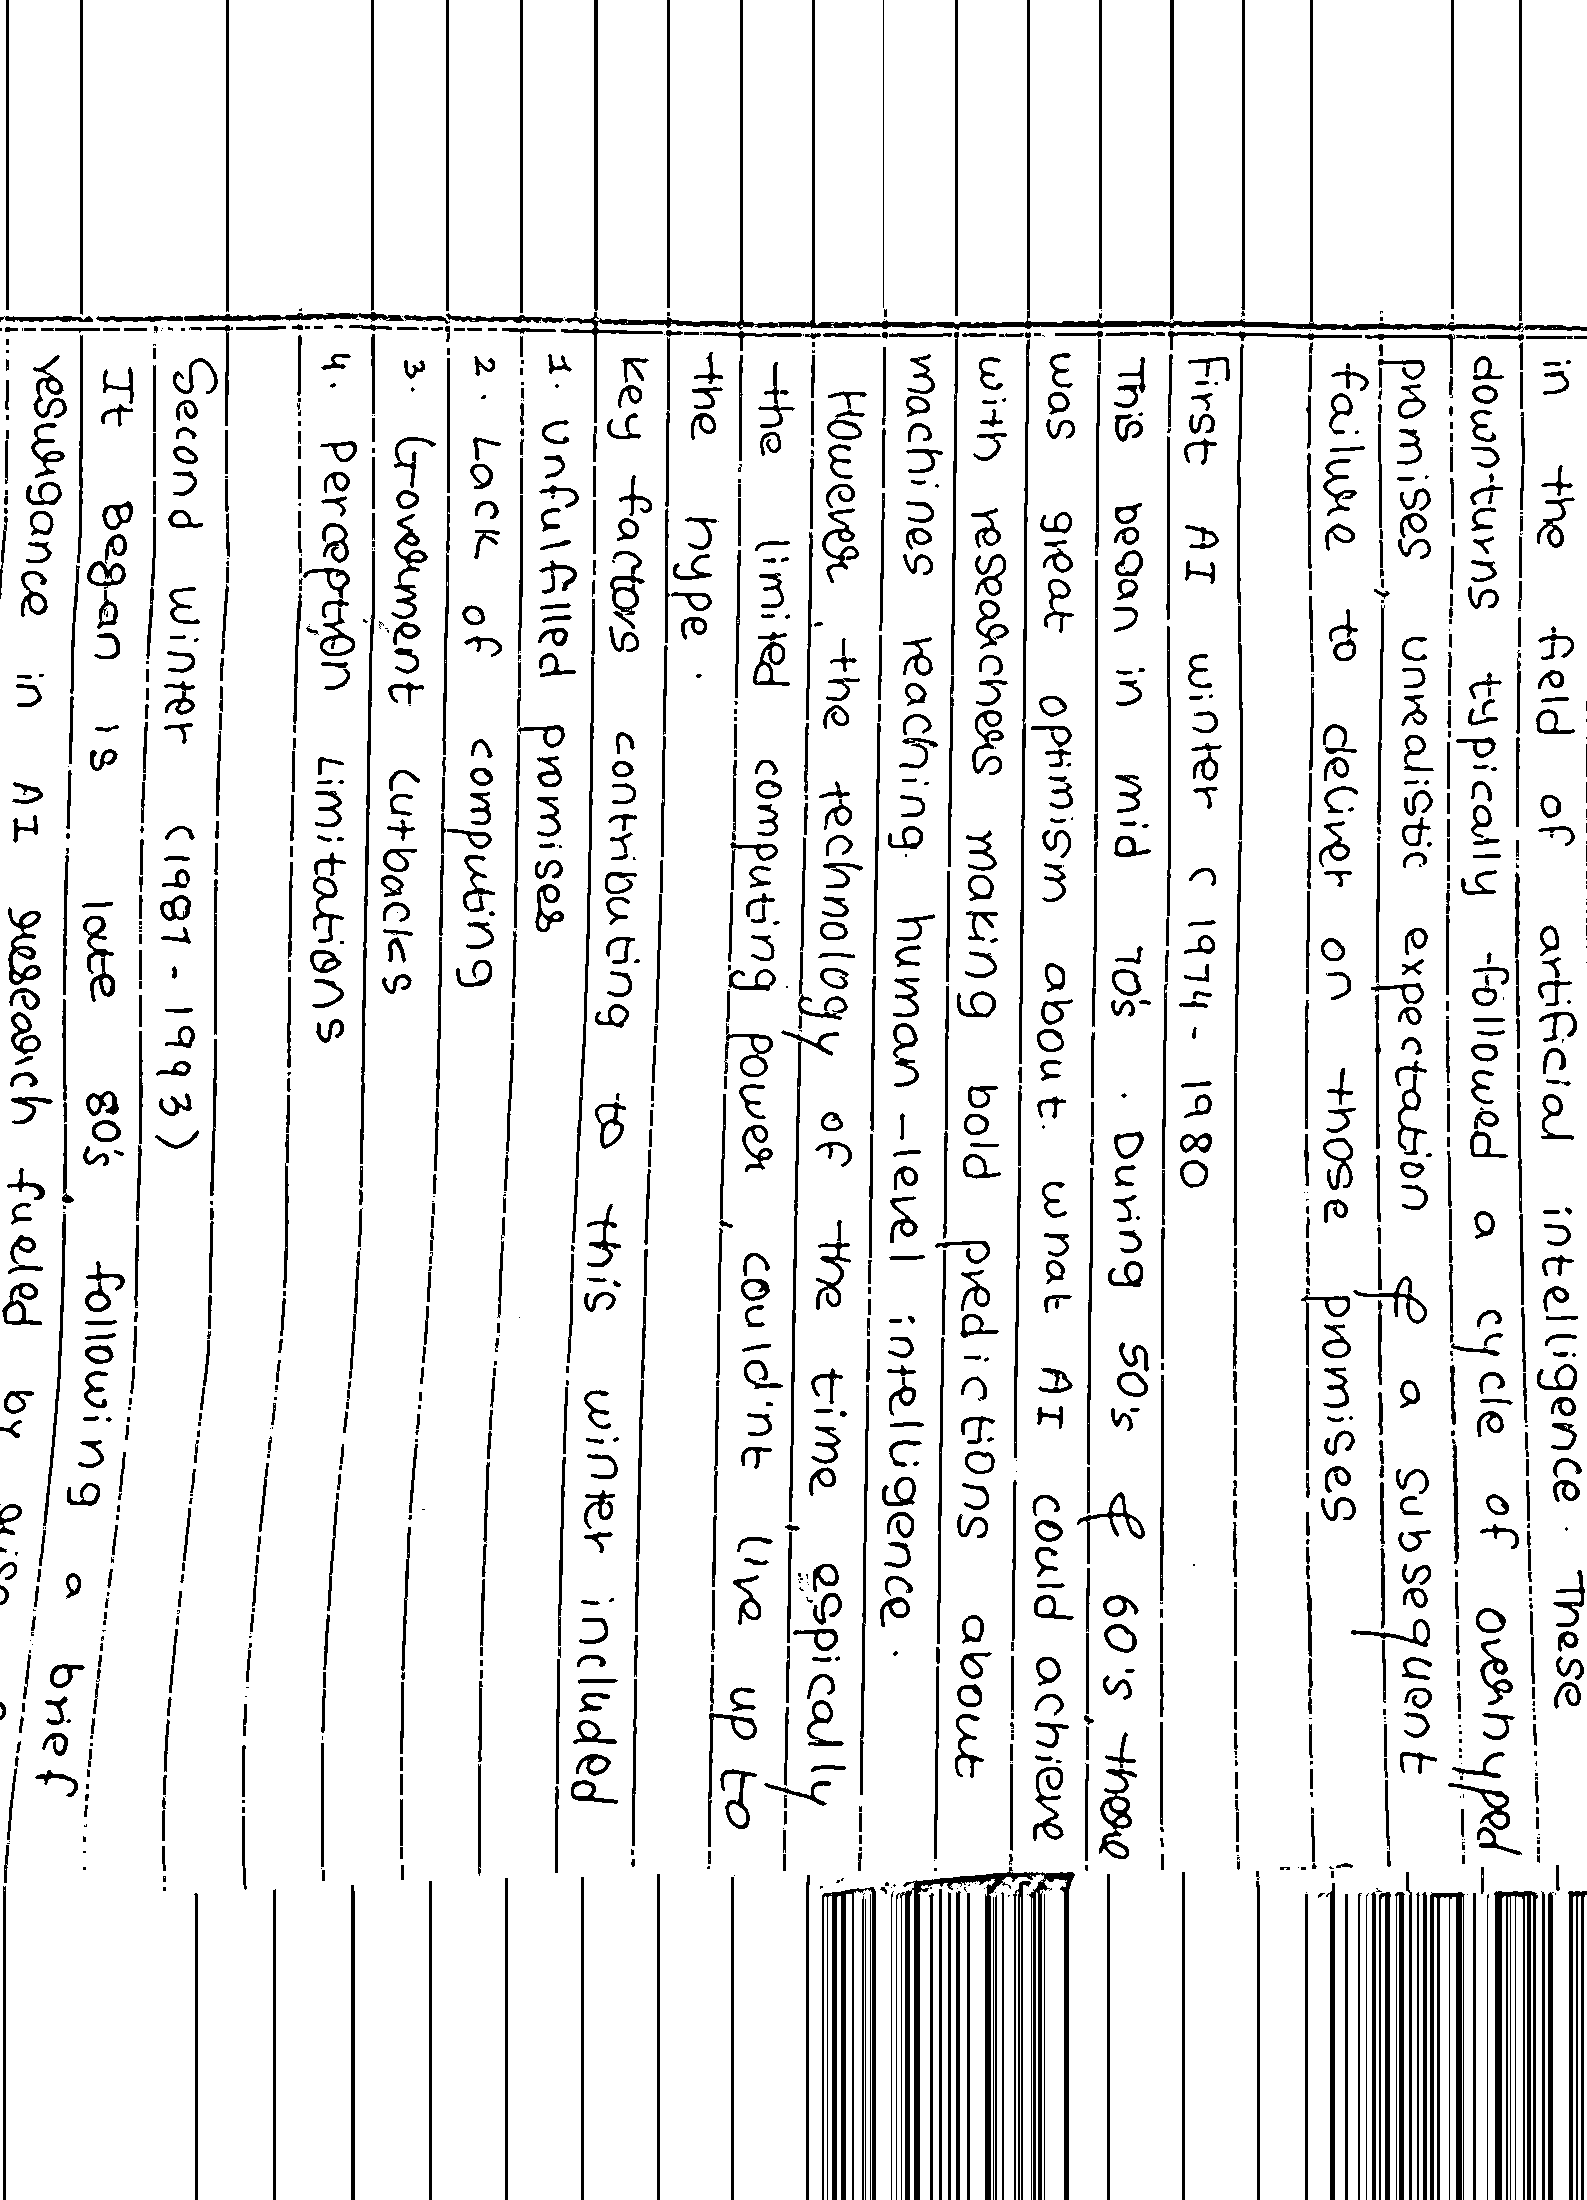 in the field of artificial intelligence. These
downturns typically followed a cycle of overhyped
promises, unrealistic expectation & a subsequent
failure to deliver on those promises
First AI winter ( 1974 - 1980
This began in mid 70's. During 50's & 60's there
was great optimism about what AI could achieve
with researchers making bold predictions about
machines reaching human-level intelligence.
However, the technology of the time, espically
the limited computing power, could'nt live up to
the hype.
key factors contributing to this winter included
1. Unfulfilled promises
2. Lack of computing
3. Government Cutbacks
4. Perception Limitations
Second winter (1987 - 1993)
It Began is late 80's following a brief
resurgance in AI research fueled by